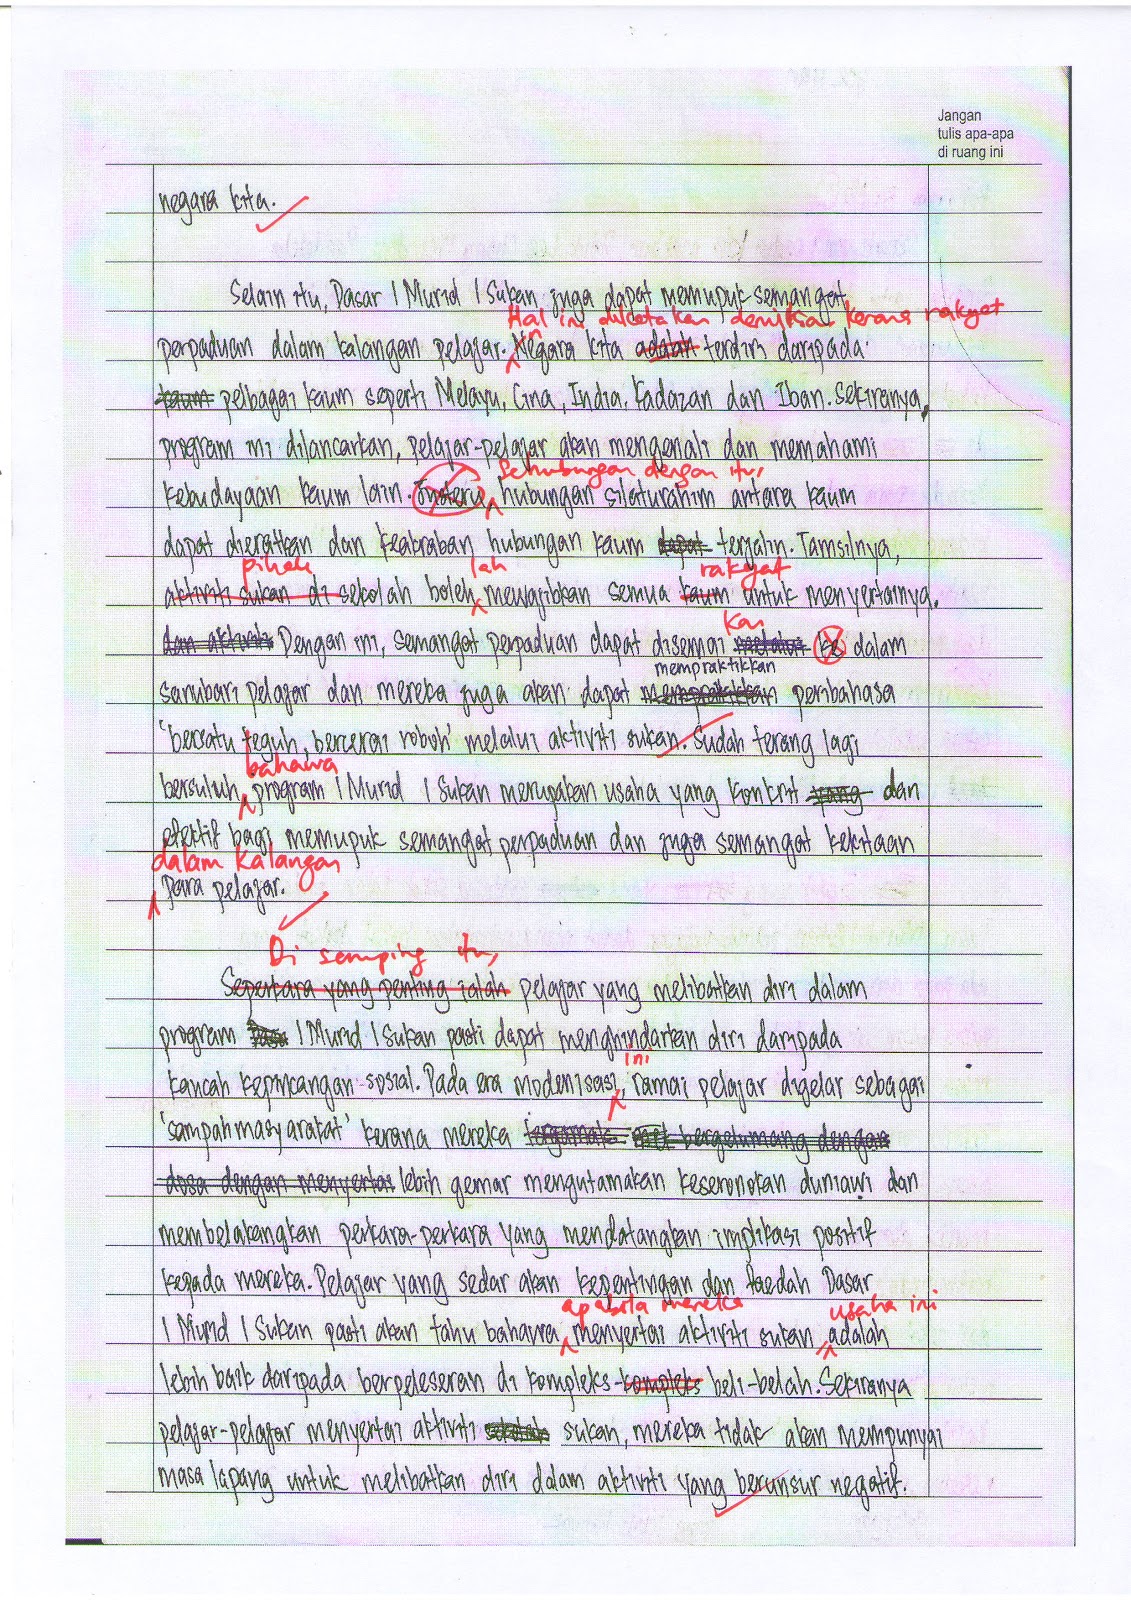 Jangan
tulis apa-apa
di ruang ini
negara kita.
Selain itu, Dasar 1 Murid 1 Sukan juga dapat memupuk semangat
Hal ini dikatakan demikian kerana rakyat
perpaduan dalam kalangan pelajar. Negara kita adalah terdiri daripada
kaum pelbagai kaum seperti Melayu, Cina, India, Kadazan dan Iban. Sekiranya,
program ini dilancarkan, pelajar-pelajar akan mengenali dan memahami
Sehubungan dengan itu,
kebudayaan kaum lain. Justeru, hubungan silaturahim antara kaum
dapat dieratkan dan keakraban hubungan kaum dapat terjalin. Tamsilnya,
pihak lah rakyat
aktiviti sukan di sekolah boleh mewajibkan semua kaum untuk menyertainya.
kan
dan aktiviti Dengan ini, semangat perpaduan dapat disemai melalui ke dalam
mempraktikkan
sanubari pelajar dan mereka juga akan dapat mempraktikkan peribahasa
'bersatu teguh, bercerai roboh' melalui aktiviti sukan. Sudah terang lagi
bahawa
bersuluh, program 1 Murid 1 Sukan merupakan usaha yang konkrit yang dan
efektif bagi memupuk semangat perpaduan dan juga semangat kekitaan
dalam kalangan
para pelajar.
Di samping itu,
Seperkara yang penting ialah pelajar yang melibatkan diri dalam
program 1 Murid 1 Sukan pasti dapat menghindarkan diri daripada
ini
kancah kepincangan sosial. Pada era modenisasi, ramai pelajar digelar sebagai
'sampah masyarakat' kerana mereka bergelumang dengan
dosa dengan menyertai lebih gemar mengutamakan keseronokan duniawi dan
membelakangkan perkara-perkara yang mendatangkan implikasi positif
kepada mereka. Pelajar yang sedar akan kepentingan dan faedah Dasar
apabila mereka usaha ini
1 Murid 1 Sukan pasti akan tahu bahawa menyertai aktiviti sukan adalah
lebih baik daripada berpeleseran di kompleks-kompleks beli-belah. Sekiranya
pelajar-pelajar menyertai aktiviti sukan, mereka tidak akan mempunyai
masa lapang untuk melibatkan diri dalam aktiviti yang berunsur negatif.